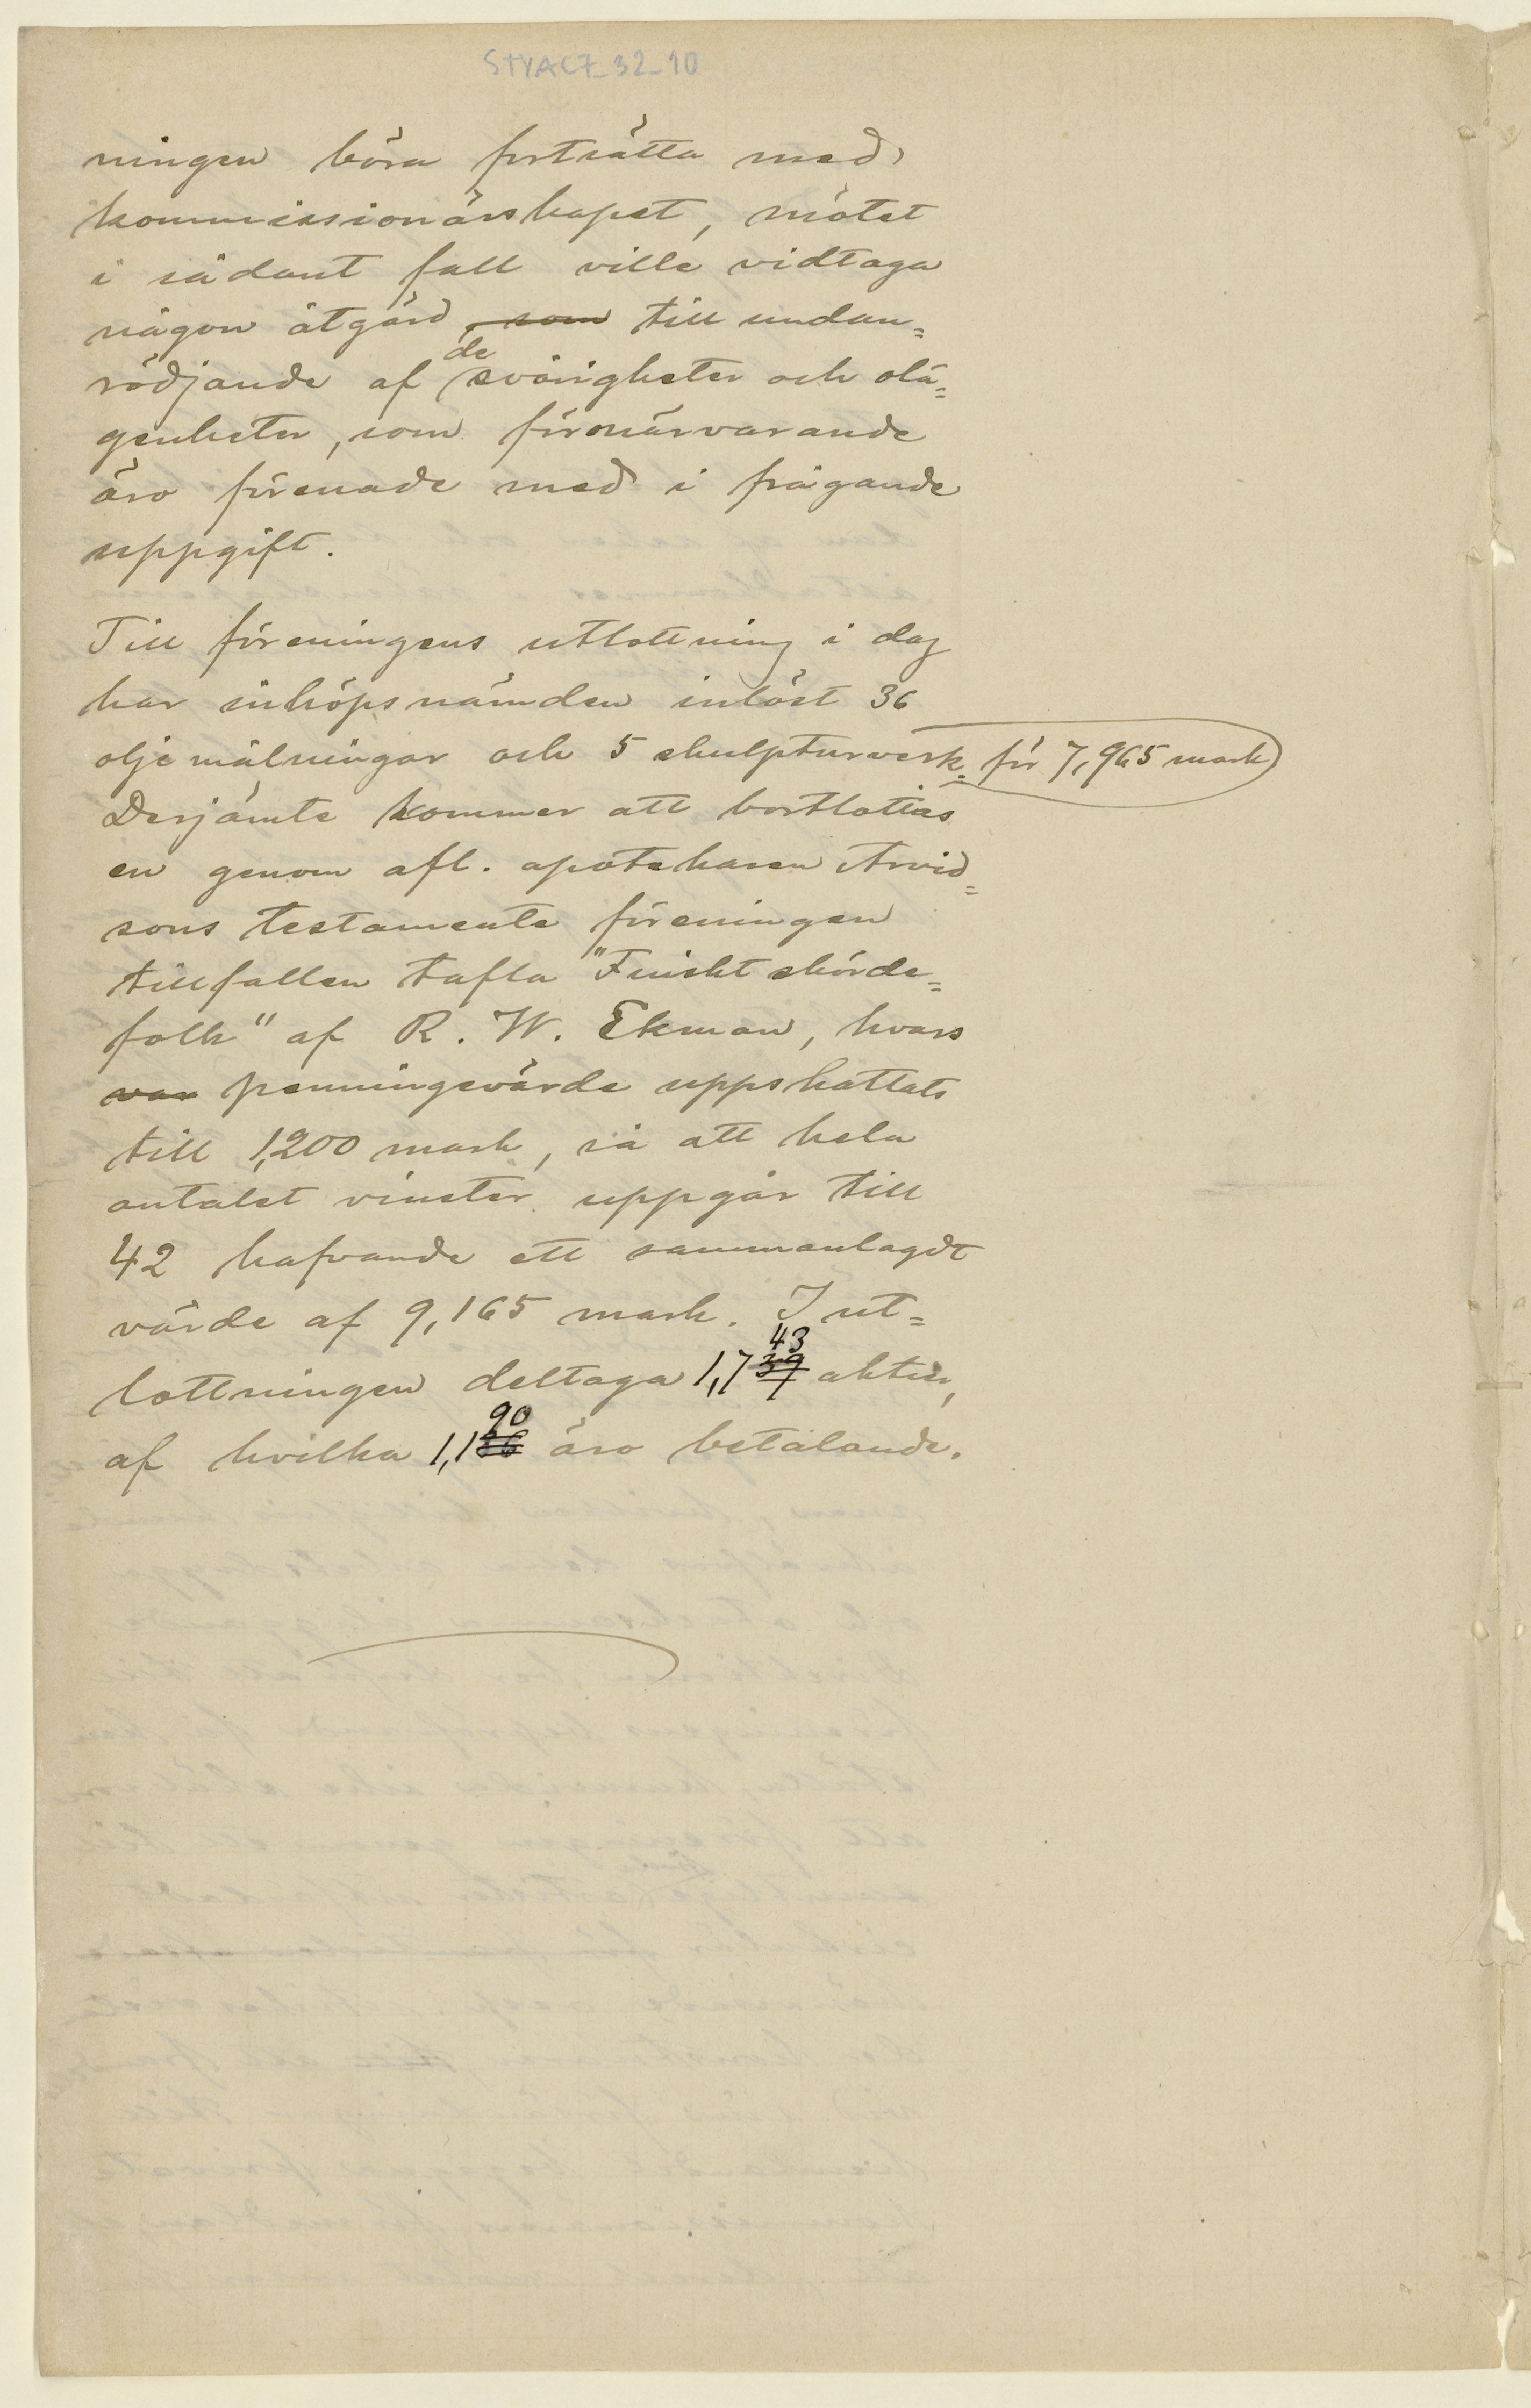 STYAC7_32_10
ningen böra fortsätta med
kommissionärskapet, mötet
i sådant fall ville vidtaga
någon åtgärd, som till undan=
de
rödjande af svårigheter och olä=
genheter, som förnärvarande
äro förenade med i frågande
uppgift.
Till föreningens utlottning i dag
har inköpsnämden inlöst 36
oljemålningar och 5 skulpturverk. för 7,965 mark
Derjämte kommer att bortlottas
en genom afl. apotekaren Arvid=
sons testamente föreningen
tillfallen tafla "Finskt skörde=
folk" af R. W. Ekman, hvars
var penningevärde uppskattats
till 1,200 mark, så att hela
antalet vinster uppgår till
42 hafvande ett sammanlagdt
värde af 9,165 mark. I ut=
43
lottningen deltaga 1,739 aktier,
90
af hvilka 1,1 äro betalande.